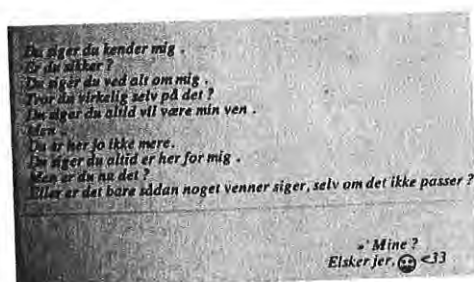 Du siger du kender mig .
Er du sikker ?
Du siger du ved alt om mig .
Tror du virkelig selv på det ?
Du siger du altid vil være min ven .
Men .
Du er her jo ikke mere.
Du siger du altid er her for mig .
Men er du nu det ?
Eller er det bare sådan noget venner siger, selv om det ikke passer ?
»' Mine ?
Elsker jer. <33